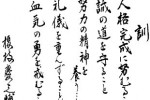 訓
人格完成に努むる
誠の道を守ること
努力の精神を養う
礼儀を重んずること
血気の勇を戒むる